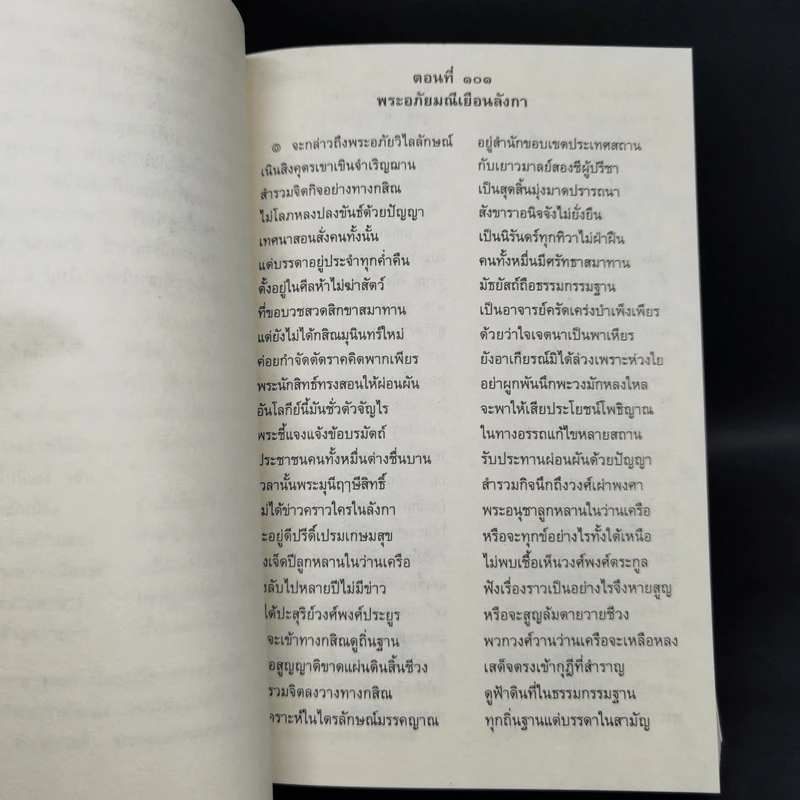 ตอนที่ ๑๐๑
พระอภัยมณีเยือนลังกา
๏ จะกล่าวถึงพระอภัยวิไลลักษณ์ อยู่สำนักขอบเขตประเทศสถาน
เนินสิงคุตรเขาเขินจำเริญฌาน กับเยาวมาลย์สองชีผู้ปรีชา
สำรวมจิตกิจอย่างทางกสิณ เป็นสุดสิ้นมุ่งมาดปรารถนา
ไม่โลภหลงปลงขันธ์ด้วยปัญญา สังขาราอนิจจังไม่ยั่งยืน
เทศนาสอนสั่งคนทั้งนั้น เป็นนิรันดร์ทุกทิวาไม่ฝ่าฝืน
แต่บรรดาอยู่ประจำทุกค่ำคืน คนทั้งหมื่นมีศรัทธาสมาทาน
ตั้งอยู่ในศีลห้าไม่ฆ่าสัตว์ มัธยัสถ์ถือธรรมกรรมฐาน
ที่ขอบวชสวดสิกขาสมาทาน เป็นอาจารย์ครัดเคร่งบำเพ็งเพียร
แต่ยังไม่ได้กสิณมุนินทร์ใหม่ ด้วยว่าใจเจตนาเป็นพาเหียร
ค่อยกำจัดตัดราคคิดพากเพียร ยังอาเกียรณ์มิได้ล่วงเพราะห่วงใย
พระนักสิทธ์ทรงสอนให้ผ่อนผัน อย่าผูกพันนึกพะวงมักหลงใหล
อันโลกีย์นี้มันชั่วตัวจัญไร จะพาให้เสียประโยชน์โพธิญาณ
พระชี้แจงแจ้งข้อบรมัตถ์ ในทางอรรถแก้ไขหลายสถาน
ประชาชนคนทั้งหมื่นต่างชื่นบาน รับประทานผ่อนผันด้วยปัญญา
วลานั้นพระมุนีฤๅษีสิทธิ์ สำรวมกิจนึกถึงวงศ์เผ่าพงศา
ม่ได้ข่าวคราวใครในลังกา พระอนุชาลูกหลานในว่านเครือ
ะอยู่ดีปรีดิ์เปรมเกษมสุข หรือจะทุกข์อย่างไรทั้งใต้เหนือ
งเจ็ดปีลูกหลานในว่านเครือ ไม่พบเชื้อเห็นวงศ์พงศ์ตระกูล
ลับไปหลายปีไม่มีข่าว ฟังเรื่องราวเป็นอย่างไรจึงหายสูญ
ได้ปะสุริย์วงศ์พงศ์ประยูร หรือจะสูญล้มตายวายชีวง
จะเข้าทางกสิณดูถิ่นฐาน พวกวงศ์วานว่านเครือจะเหลือหลง
อสูญญาติขาดแผ่นดินสิ้นชีวง เสด็จตรงเข้ากุฎีที่สำราญ
รวมจิตลงวางทางกสิณ ดูฟ้าดินที่ในธรรมกรรมฐาน
คราะห์ในไตรลักษณ์มรรคญาณ ทุกถิ่นฐานแต่บรรดาในสามัญ